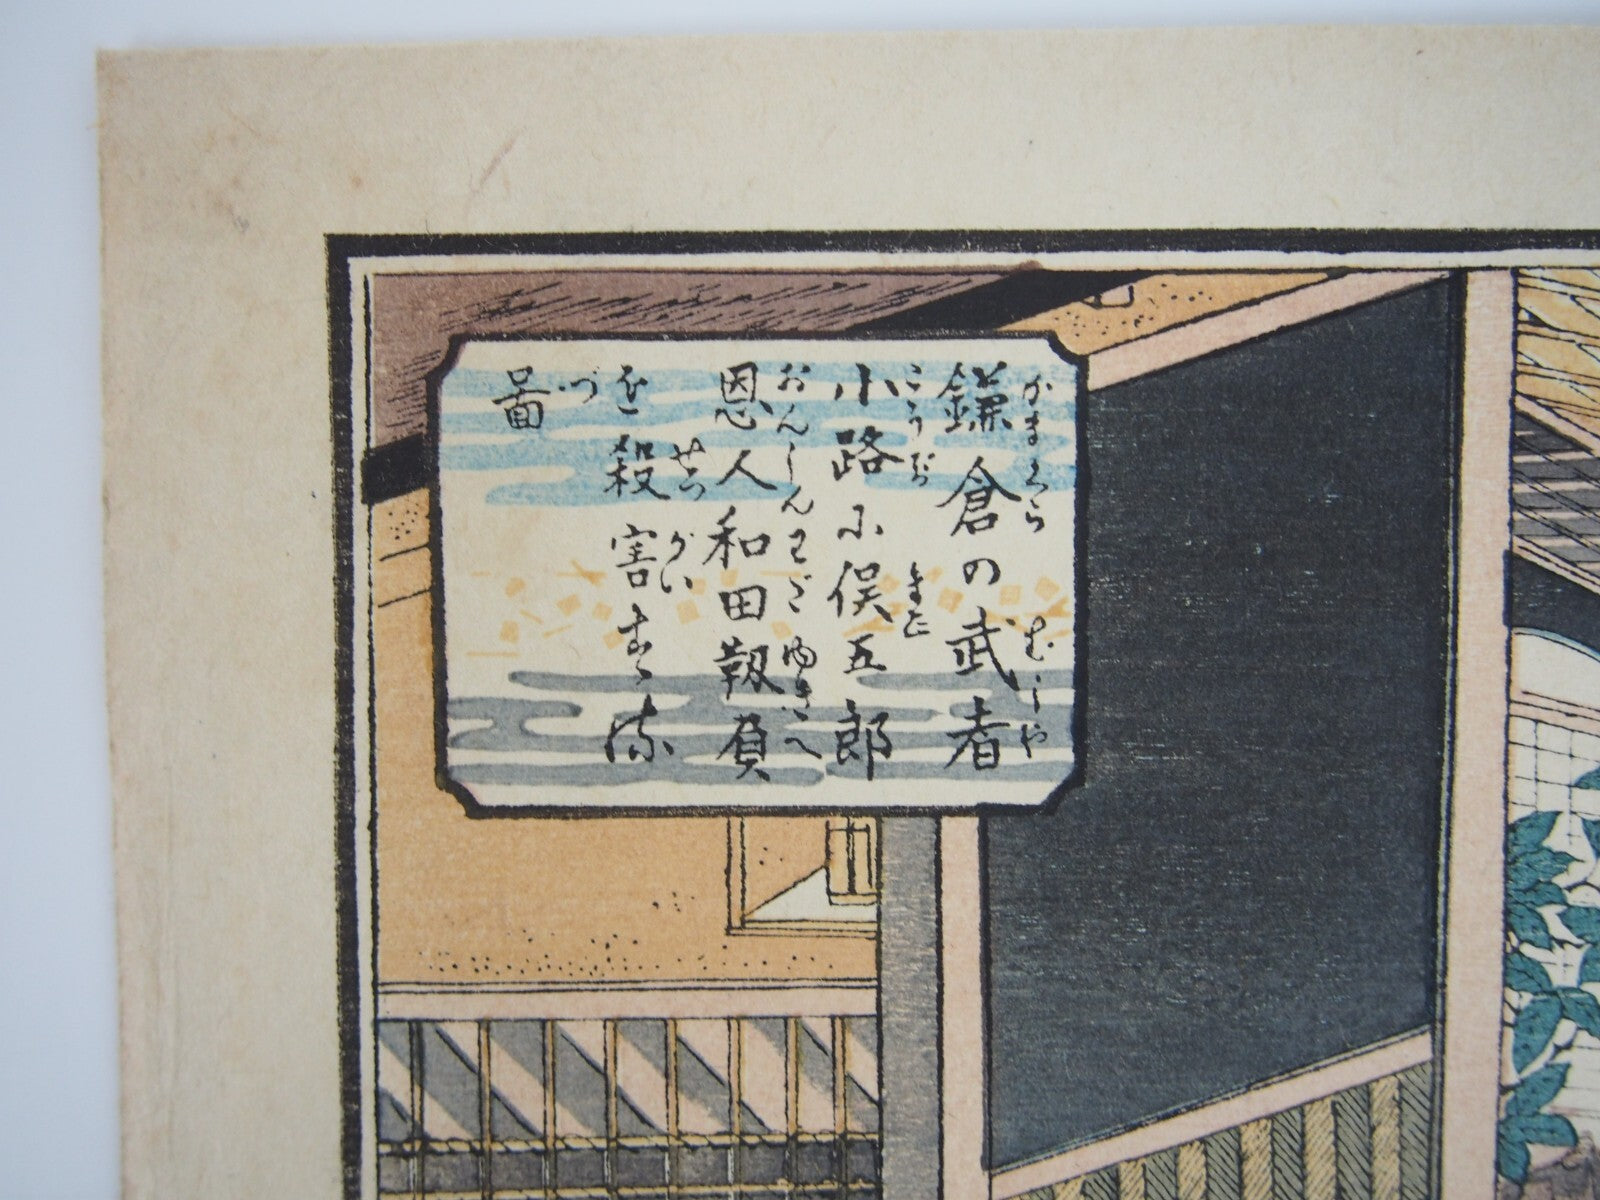 鎌倉の武者
かまくら むしや
小路に俣五郎
こうぢ また
恩人和田靱負
おんじんわだゆきへ
を殺害する
せつがい
図
づ